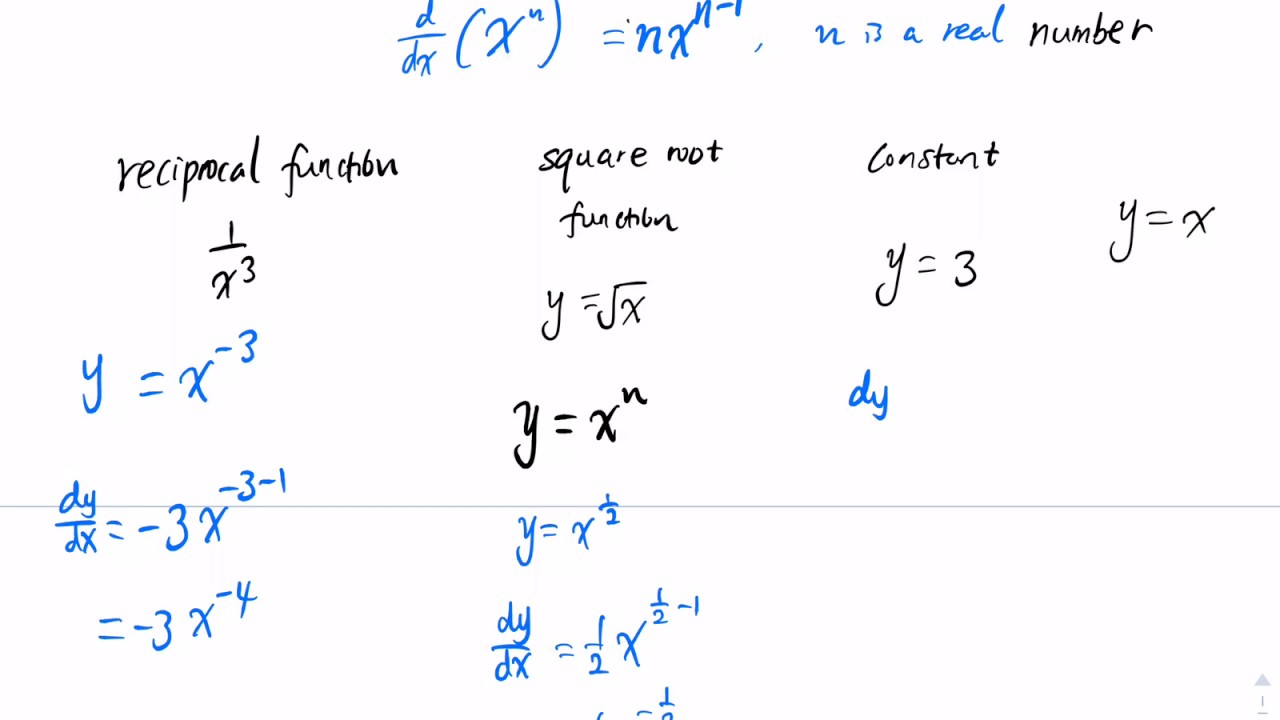 d/dx (xⁿ) = nxⁿ⁻¹, n is a real number
reciprocal function
1/x³
y = x⁻³
dy/dx = -3x⁻³⁻¹
= -3x⁻⁴
square root
function
y = √x
y = xⁿ
y = x^(1/2)
dy/dx = 1/2 x^(1/2 - 1)
constant
y = 3
dy
y = x